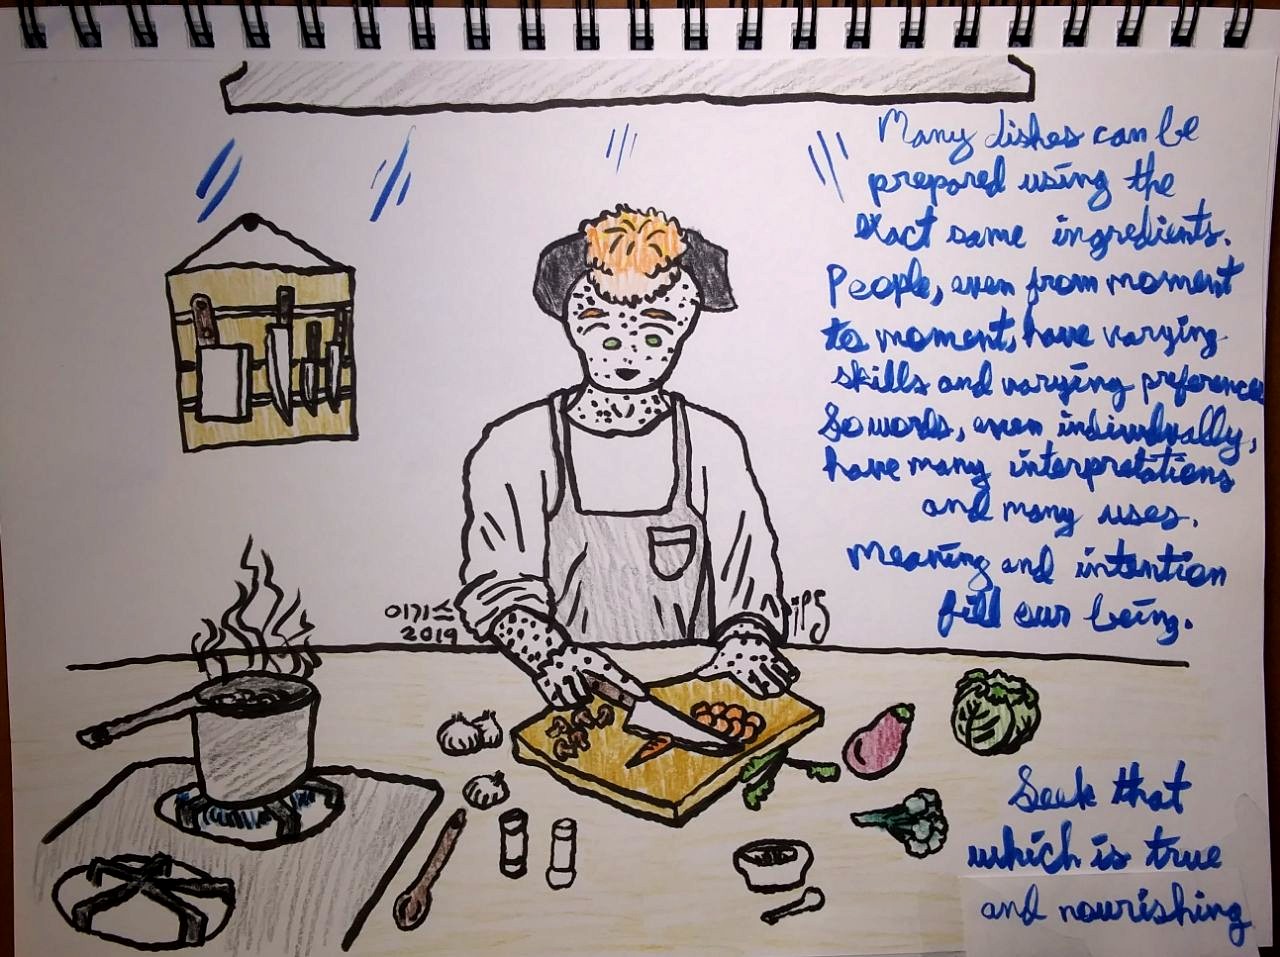 Many dishes can be
prepared using the
exact same ingredients.
People, even from moment
to moment, have varying
skills and varying preference
So words, even individually,
have many interpretations
and many uses.
Meaning and intention
fill our being.
이기스
2019
Seek that
which is true
and nourishing